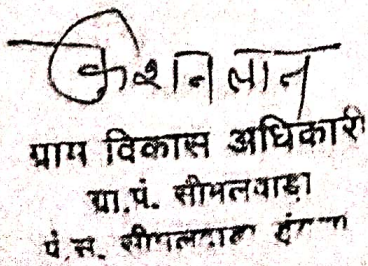 किशनलाल
ग्राम विकास अधिकारी
ग्रा.पं. सीमलवाड़ा
पं.स. सीमलवाड़ा